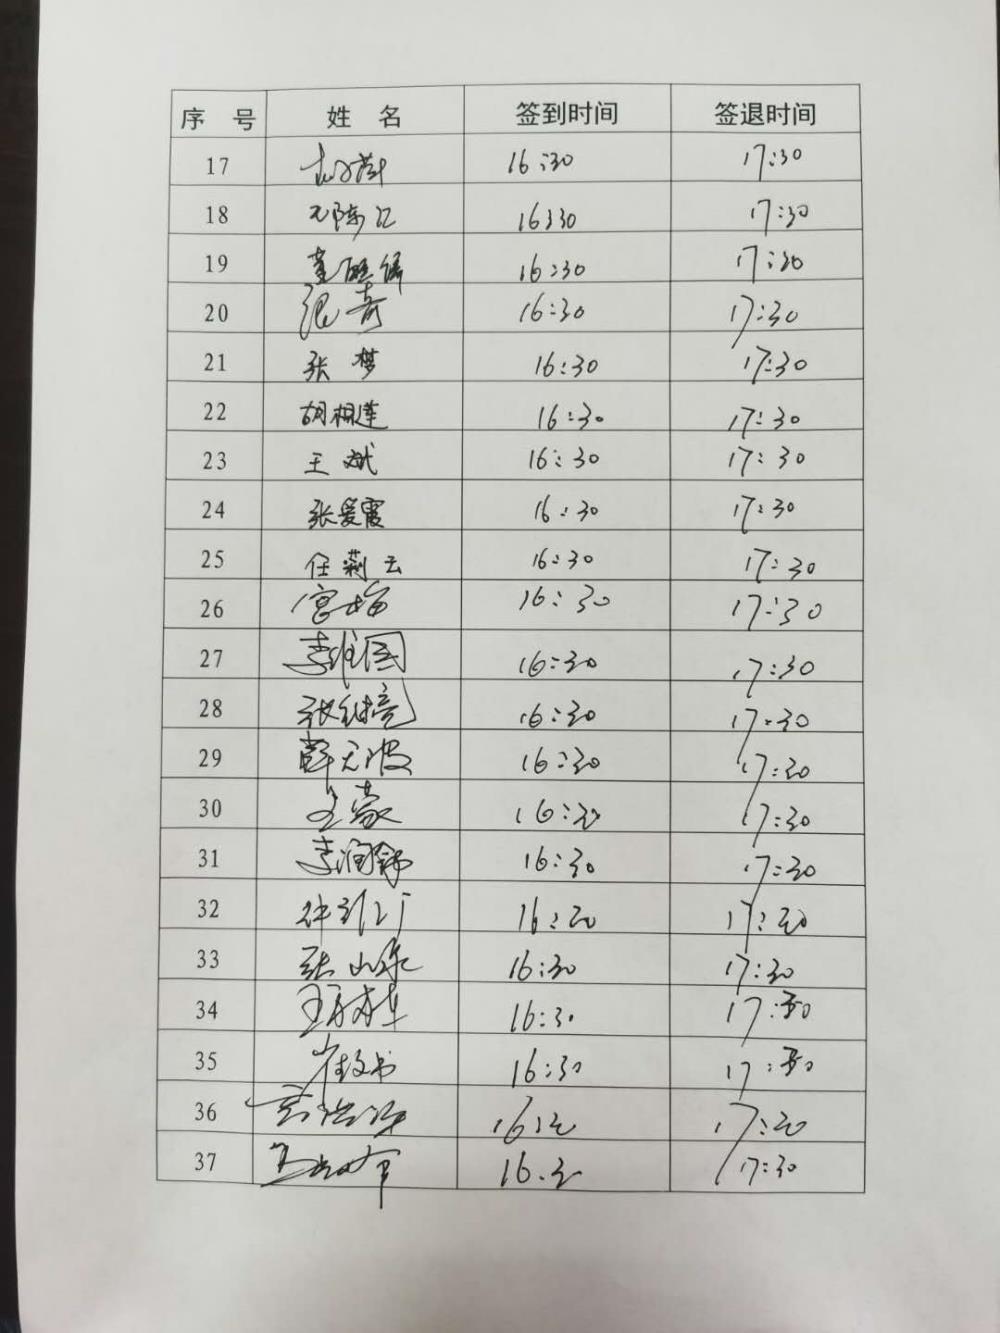 序 号 姓 名 签到时间 签退时间
17 16:30 17:30
18 16:30 17:30
19 16:30 17:30
20 张奇 16:30 17:30
21 张 梦 16:30 17:30
22 胡相莲 16:30 17:30
23 王 斌 16:30 17:30
24 张爱霞 16:30 17:30
25 任莉云 16:30 17:30
26 宫梅 16:30 17:30
27 李维国 16:30 17:30
28 16:30 17:30
29 薛天波 16:30 17:30
30 王豪 16:30 17:30
31 16:30 17:30
32 16:30 17:30
33 张山东 16:30 17:30
34 16:30 17:30
35 16:30 17:30
36 16:30 17:30
37 16:30 17:30